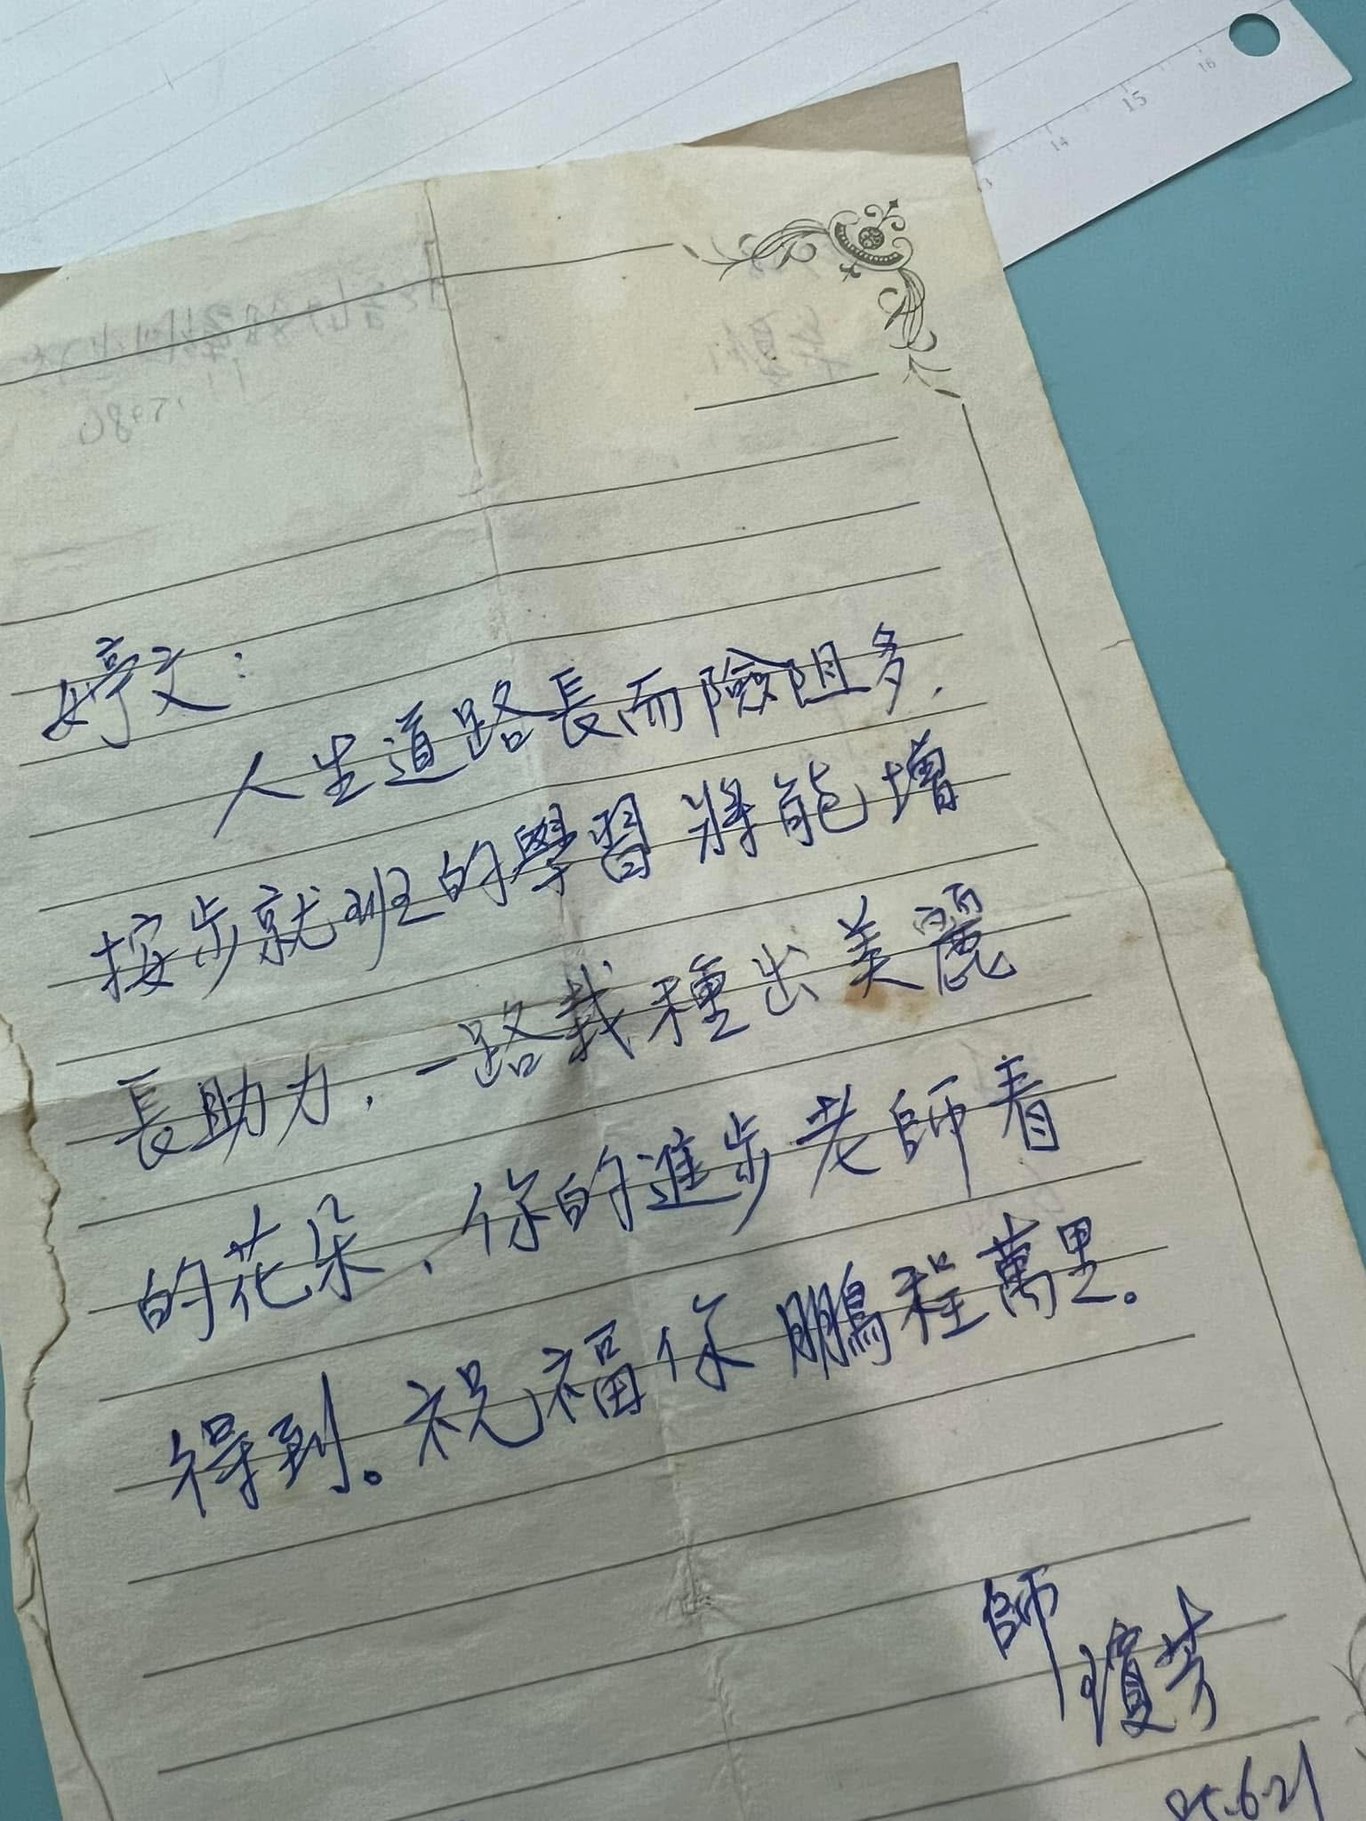 13
14
15
16
婷文：
人生道路長而險阻多，
按步就班的學習將能增
長助力，一路栽種出美麗
的花朵，你的進步老師看
得到。祝福你鵬程萬里。
師
瓊芳